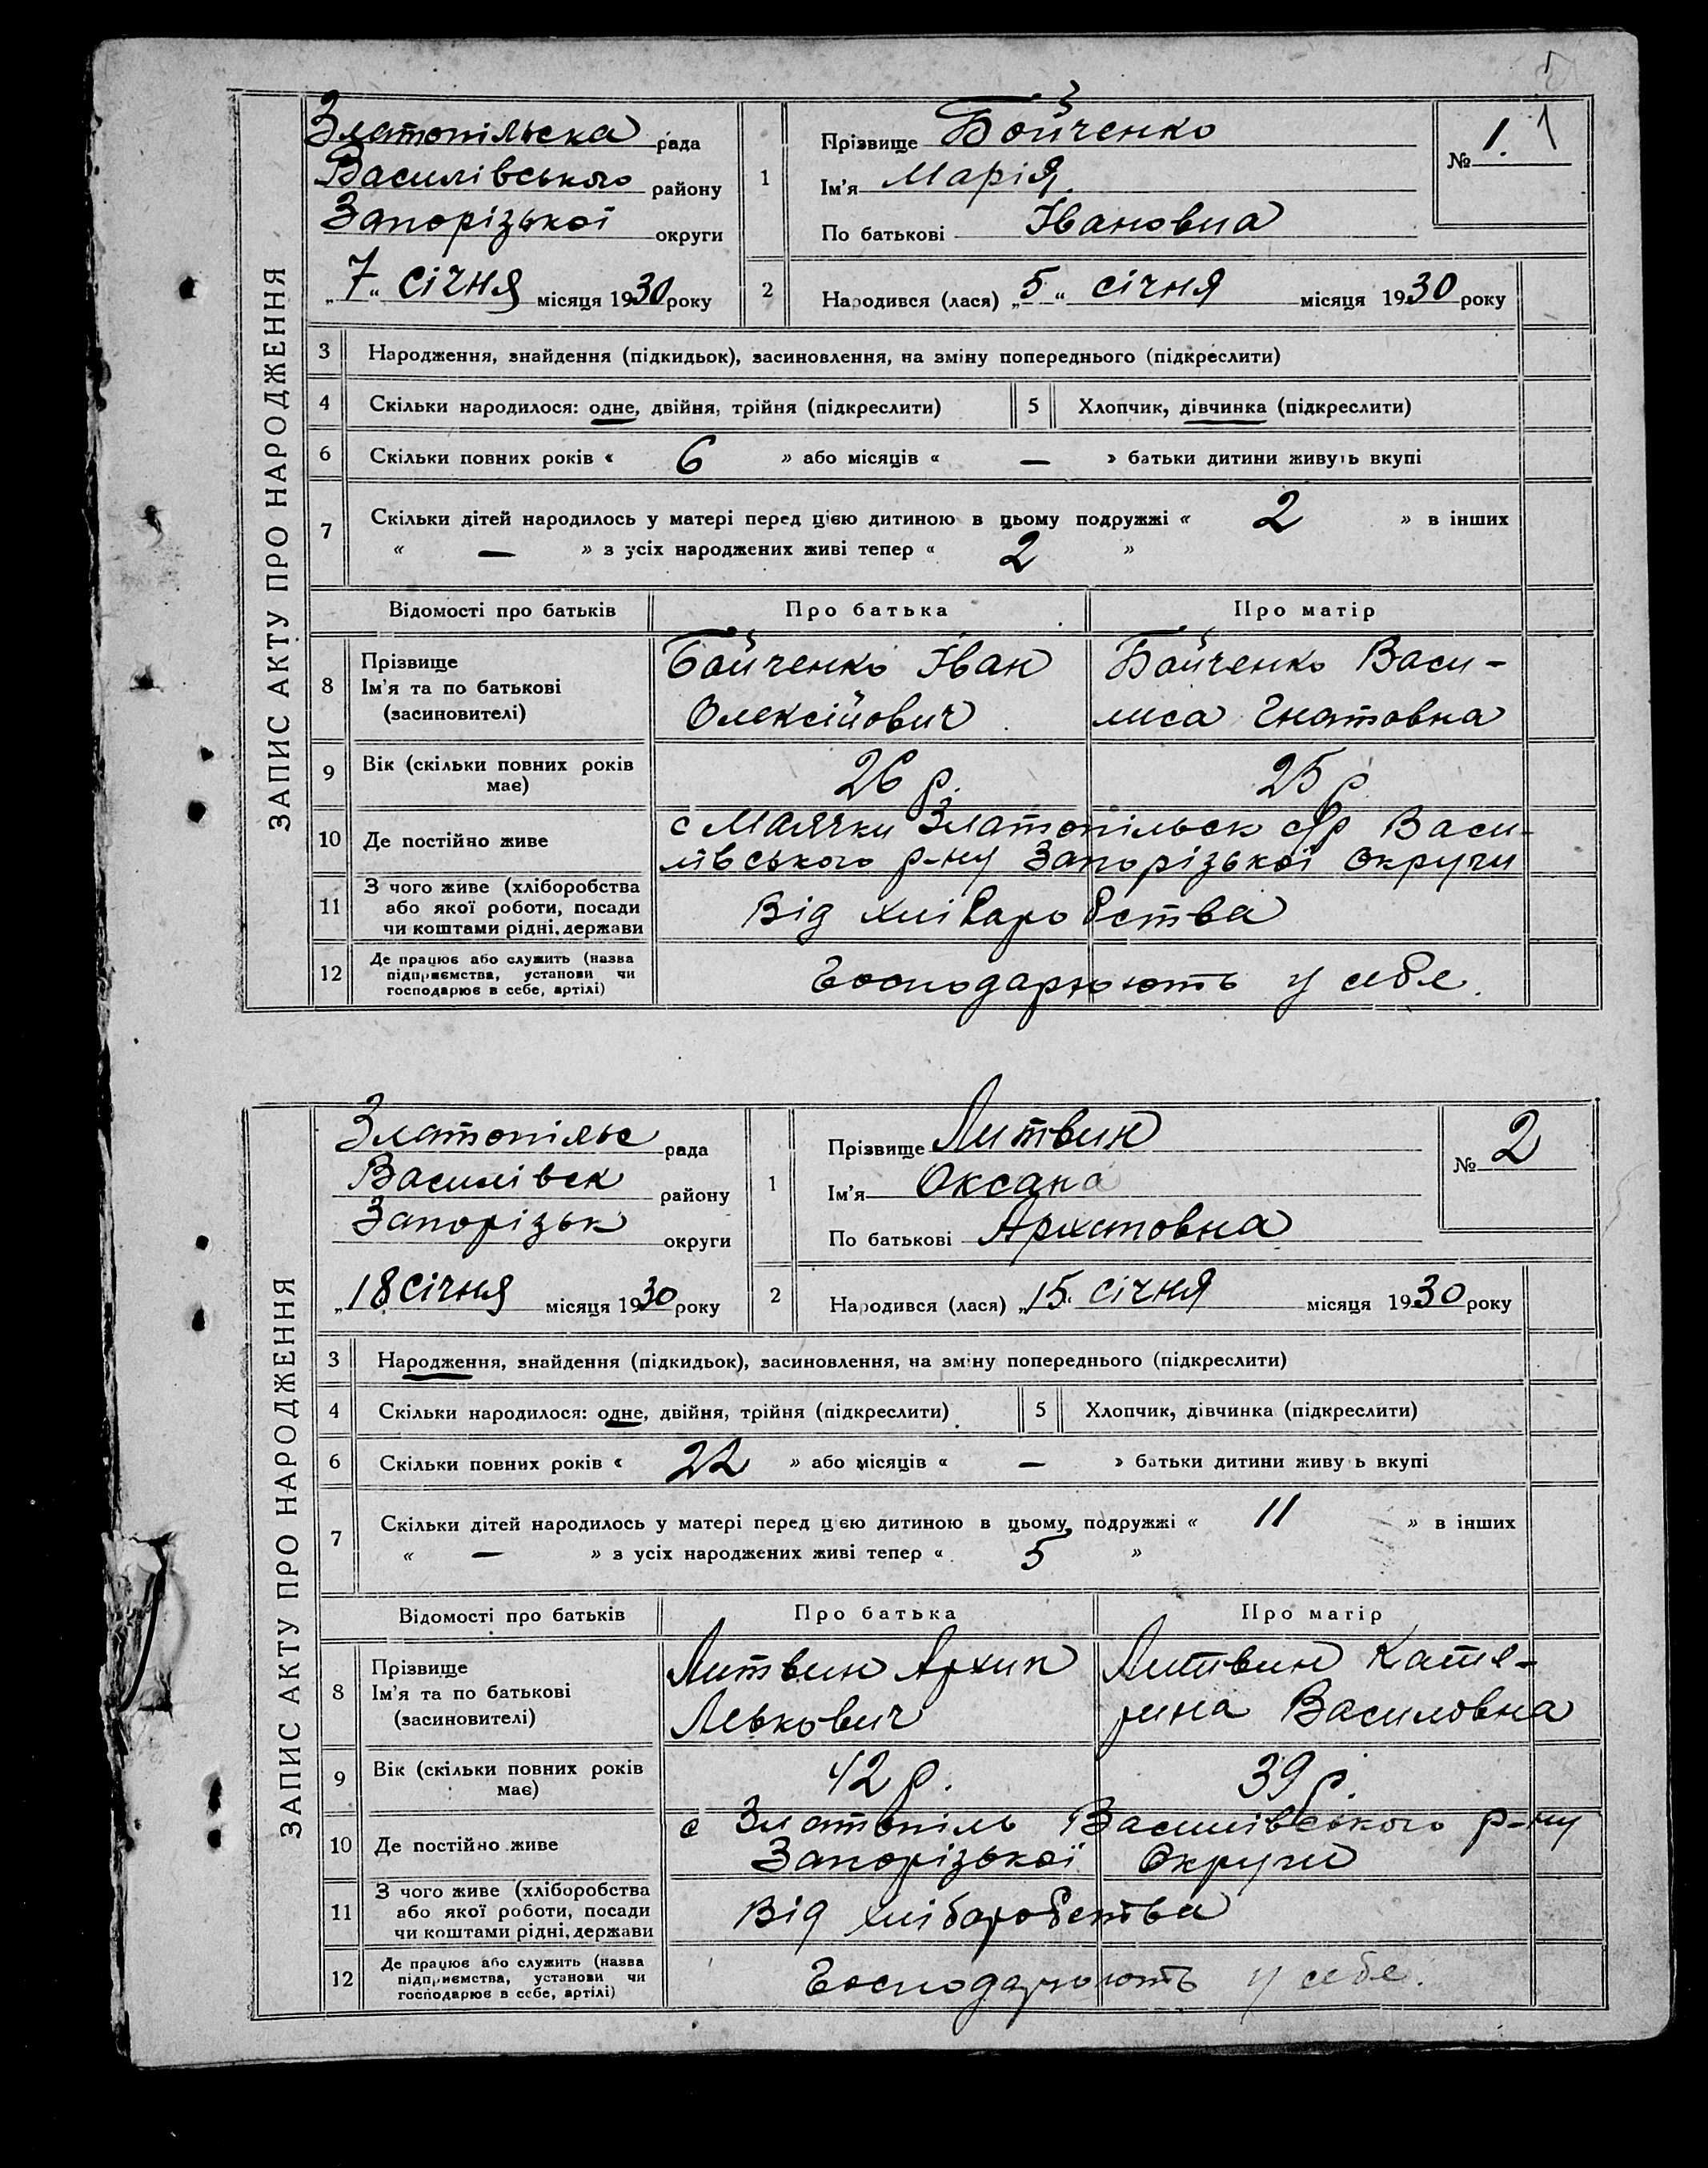 ЗАПИС АКТУ ПРО НАРОДЖЕННЯ
Златопільска рада
Василівського району
Запорізької округи
„7“ січня місяця 1930 року
1
Прізвище Бойченко
Ім'я Марія
По батькові Івановна
№ 1. 1
2
Народився (лася) „5“ січня місяця 1930 року
3 Народження, знайдення (підкидьок), засиновлення, на зміну попереднього (підкреслити)
4 Скільки народилося: одне, двійня, трійня (підкреслити) 5 Хлопчик, дівчинка (підкреслити)
6 Скільки повних років « 6 » або місяців « — » батьки дитини живуть вкупі
7 Скільки дітей народилось у матері перед цією дитиною в цьому подружжі « 2 » в інших
« — » з усіх народжених живі тепер « 2 »
Відомості про батьків Про батька Про матір
8 Прізвище
Ім'я та по батькові
(засиновителі)
Бойченко Іван
Олексійович
Бойченко Васи-
лиса Гнатовна
9 Вік (скільки повних років
має)
26 р. 25 р
10 Де постійно живе
с Маячки Златопільск с/р Васи-
лівського р-ну Запорізької Округи
11 З чого живе (хліборобства
або якої роботи, посади
чи коштами рідні, держави
Від хліборобства
12 Де працює або служить (назва
підприємства, установи чи
господарює в себе, артілі)
Господарюють у себе.
ЗАПИС АКТУ ПРО НАРОДЖЕННЯ
Златопільс рада
Василівск району
Запорізьк округи
„18 січня місяця 1930 року
1
Прізвище Литвин
Ім'я Оксана
По батькові Архиповна
№ 2
2
Народився (лася) „15“ січня місяця 1930 року
3 Народження, знайдення (підкидьок), засиновлення, на зміну попереднього (підкреслити)
4 Скільки народилося: одне, двійня, трійня (підкреслити) 5 Хлопчик, дівчинка (підкреслити)
6 Скільки повних років « 22 » або місяців « — » батьки дитини живу ь вкупі
7 Скільки дітей народилось у матері перед цією дитиною в цьому подружжі « 11 » в інших
« — » з усіх народжених живі тепер « 5 »
Відомості про батьків Про батька Про матір
8 Прізвище
Ім'я та по батькові
(засиновителі)
Литвин Архип
Левкович
Литвин Кате-
рина Василовна
9 Вік (скільки повних років
має)
42 р. 39 р.
10 Де постійно живе
с Златопіль Василівського р-ну
Запорізької Округи
11 З чого живе (хліборобства
або якої роботи, посади
чи коштами рідні, держави
Від хліборобства
12 Де працює або служить (назва
підприємства, установи чи
господарює в себе, артілі)
Господарюють у себе.